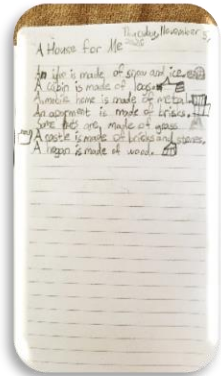 Thursday, November 5,
A House for Me
An is made of snow and ice.
A cabin is made of logs.
A mobile home is made of metal.
An is made of
Some are made of grass
A castle is made of bricks and stones.
A hogan is made of wood.